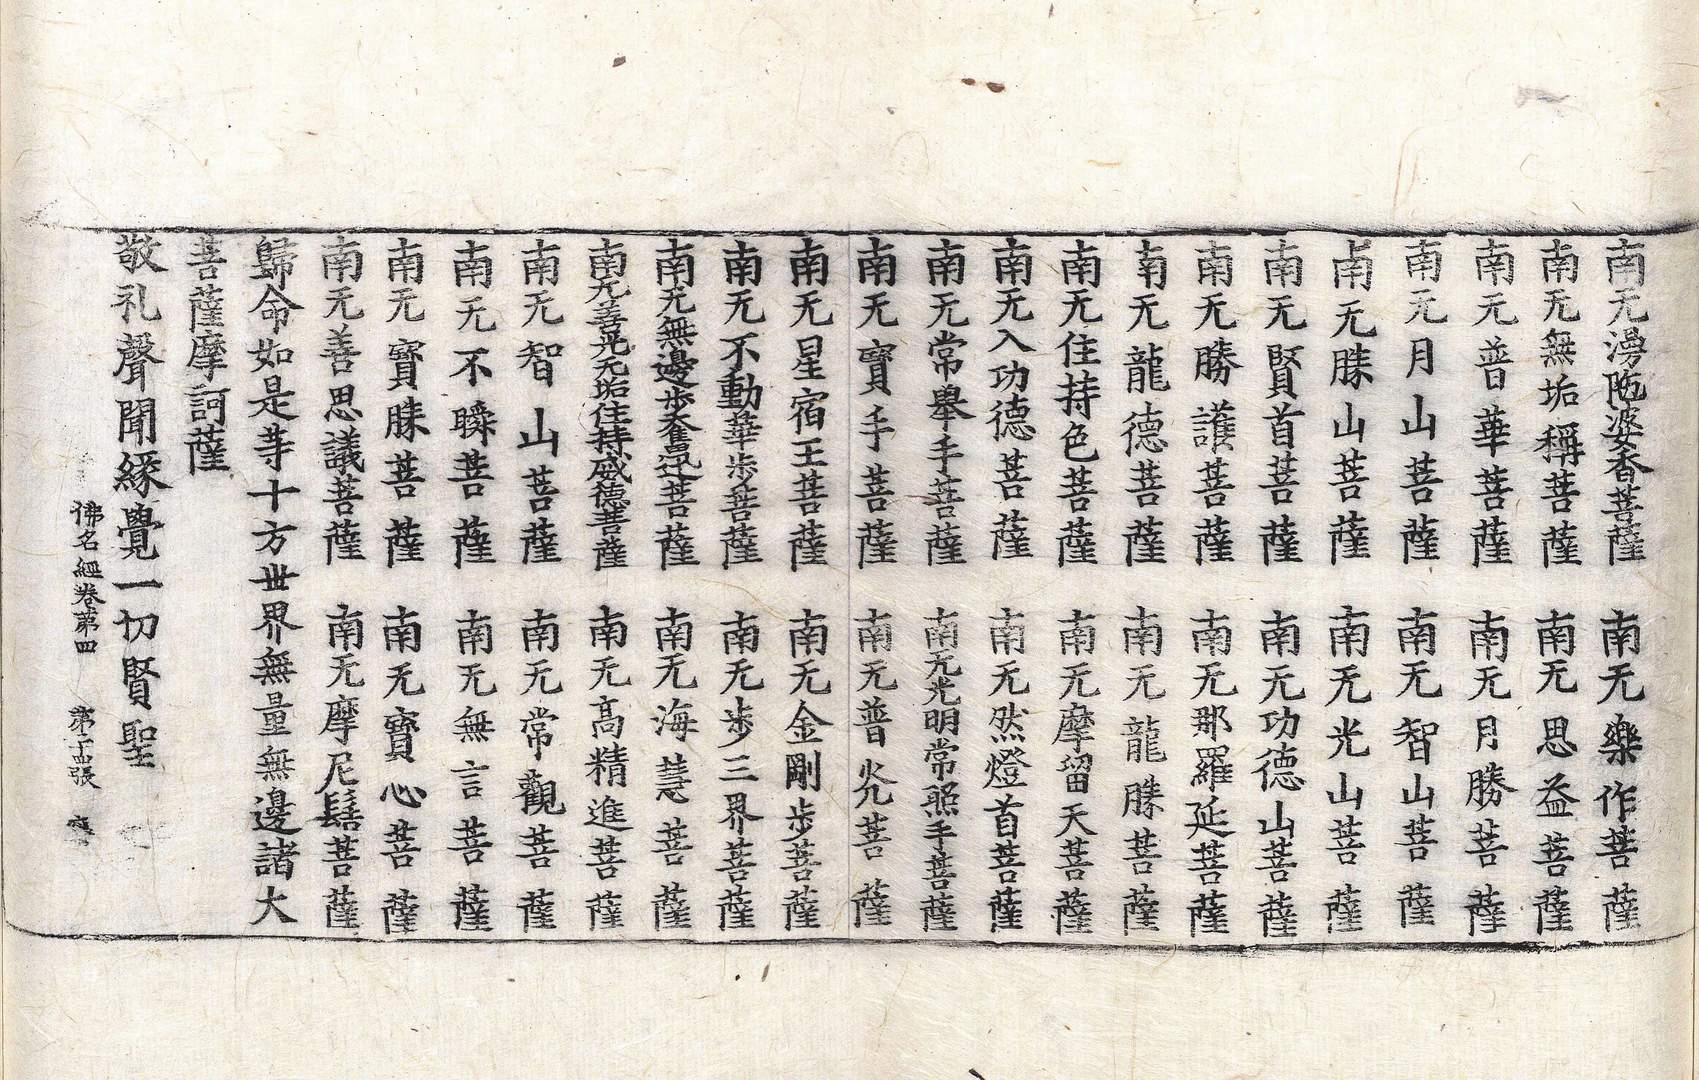 南无湯陁婆香菩薩 南无樂作菩薩
南无無垢稱菩薩 南无思益菩薩
南无普華菩薩 南无月勝菩薩
南无月山菩薩 南无智山菩薩
南无勝山菩薩 南无光山菩薩
南无賢首菩薩 南无功德山菩薩
南无勝護菩薩 南无那羅延菩薩
南无龍德菩薩 南无龍勝菩薩
南无住持色菩薩 南无摩留天菩薩
南无入功德菩薩 南无然燈首菩薩
南无常舉手菩薩 南无光明常照手菩薩
南无寶手菩薩 南无普光菩薩
南无星宿王菩薩 南无金剛步菩薩
南无不動華步菩薩 南无步三界菩薩
南无無邊步奮迅菩薩 南无海慧菩薩
南无善光无垢住持威德菩薩 南无高精進菩薩
南无智山菩薩 南无常觀菩薩
南无不瞬菩薩 南无無言菩薩
南无寶勝菩薩 南无寶心菩薩
南无善思議菩薩 南无摩尼髻菩薩
歸命如是等十方世界無量無邊諸大
菩薩摩訶薩
敬礼聲聞緣覺一切賢聖
佛名經卷第四 第 張